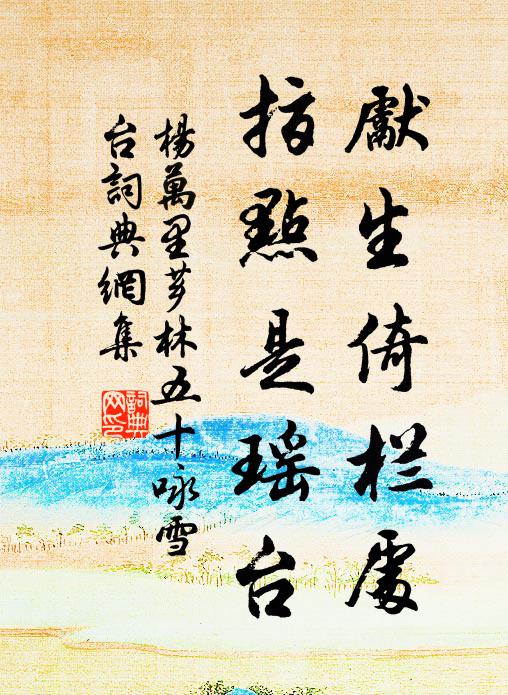 獻生倚栏處
指點是瑶台
楊萬里芗林五十咏雪
台詞典網集
詞典
网印